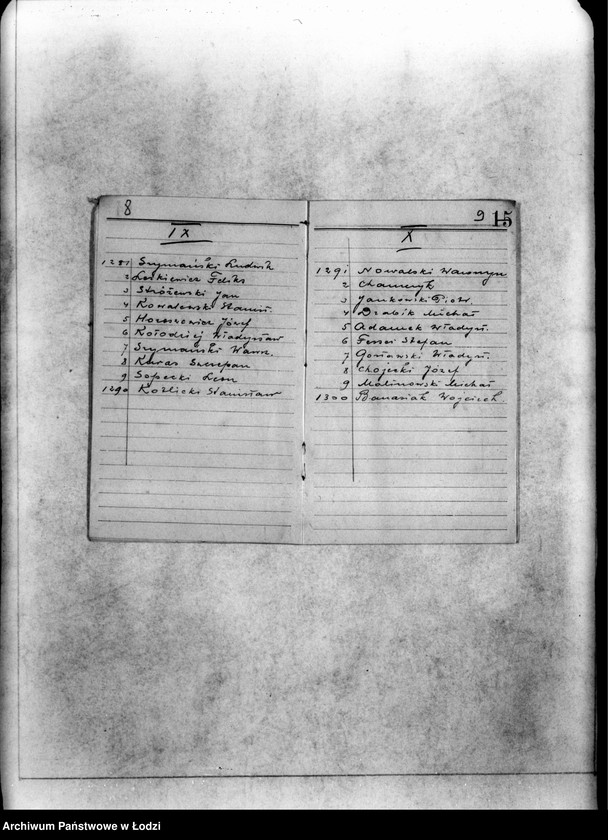 8
IX
1281 Szymański Ludwik
2 Leśkiewicz Feliks
3 Stróżewski Jan
4 Kowalewski Stanisł.
5 Józef
6 Kołodziej Władysław
7 Szymański Wawrz.
8 Karas Szczepan
9 Sopecki Leon
1290 Kozlicki Stanisław
9 15
X
1291 Nowalski Wawrzyn
2
3 Jankowski Piotr.
4 Drabik Michał
5 Adamek Władysł.
6 Stefan
7 Władysł.
8 Chojecki Józef
9 Malinowski Michał
1300 Banasiak Wojciech.
Archiwum Państwowe w Łodzi